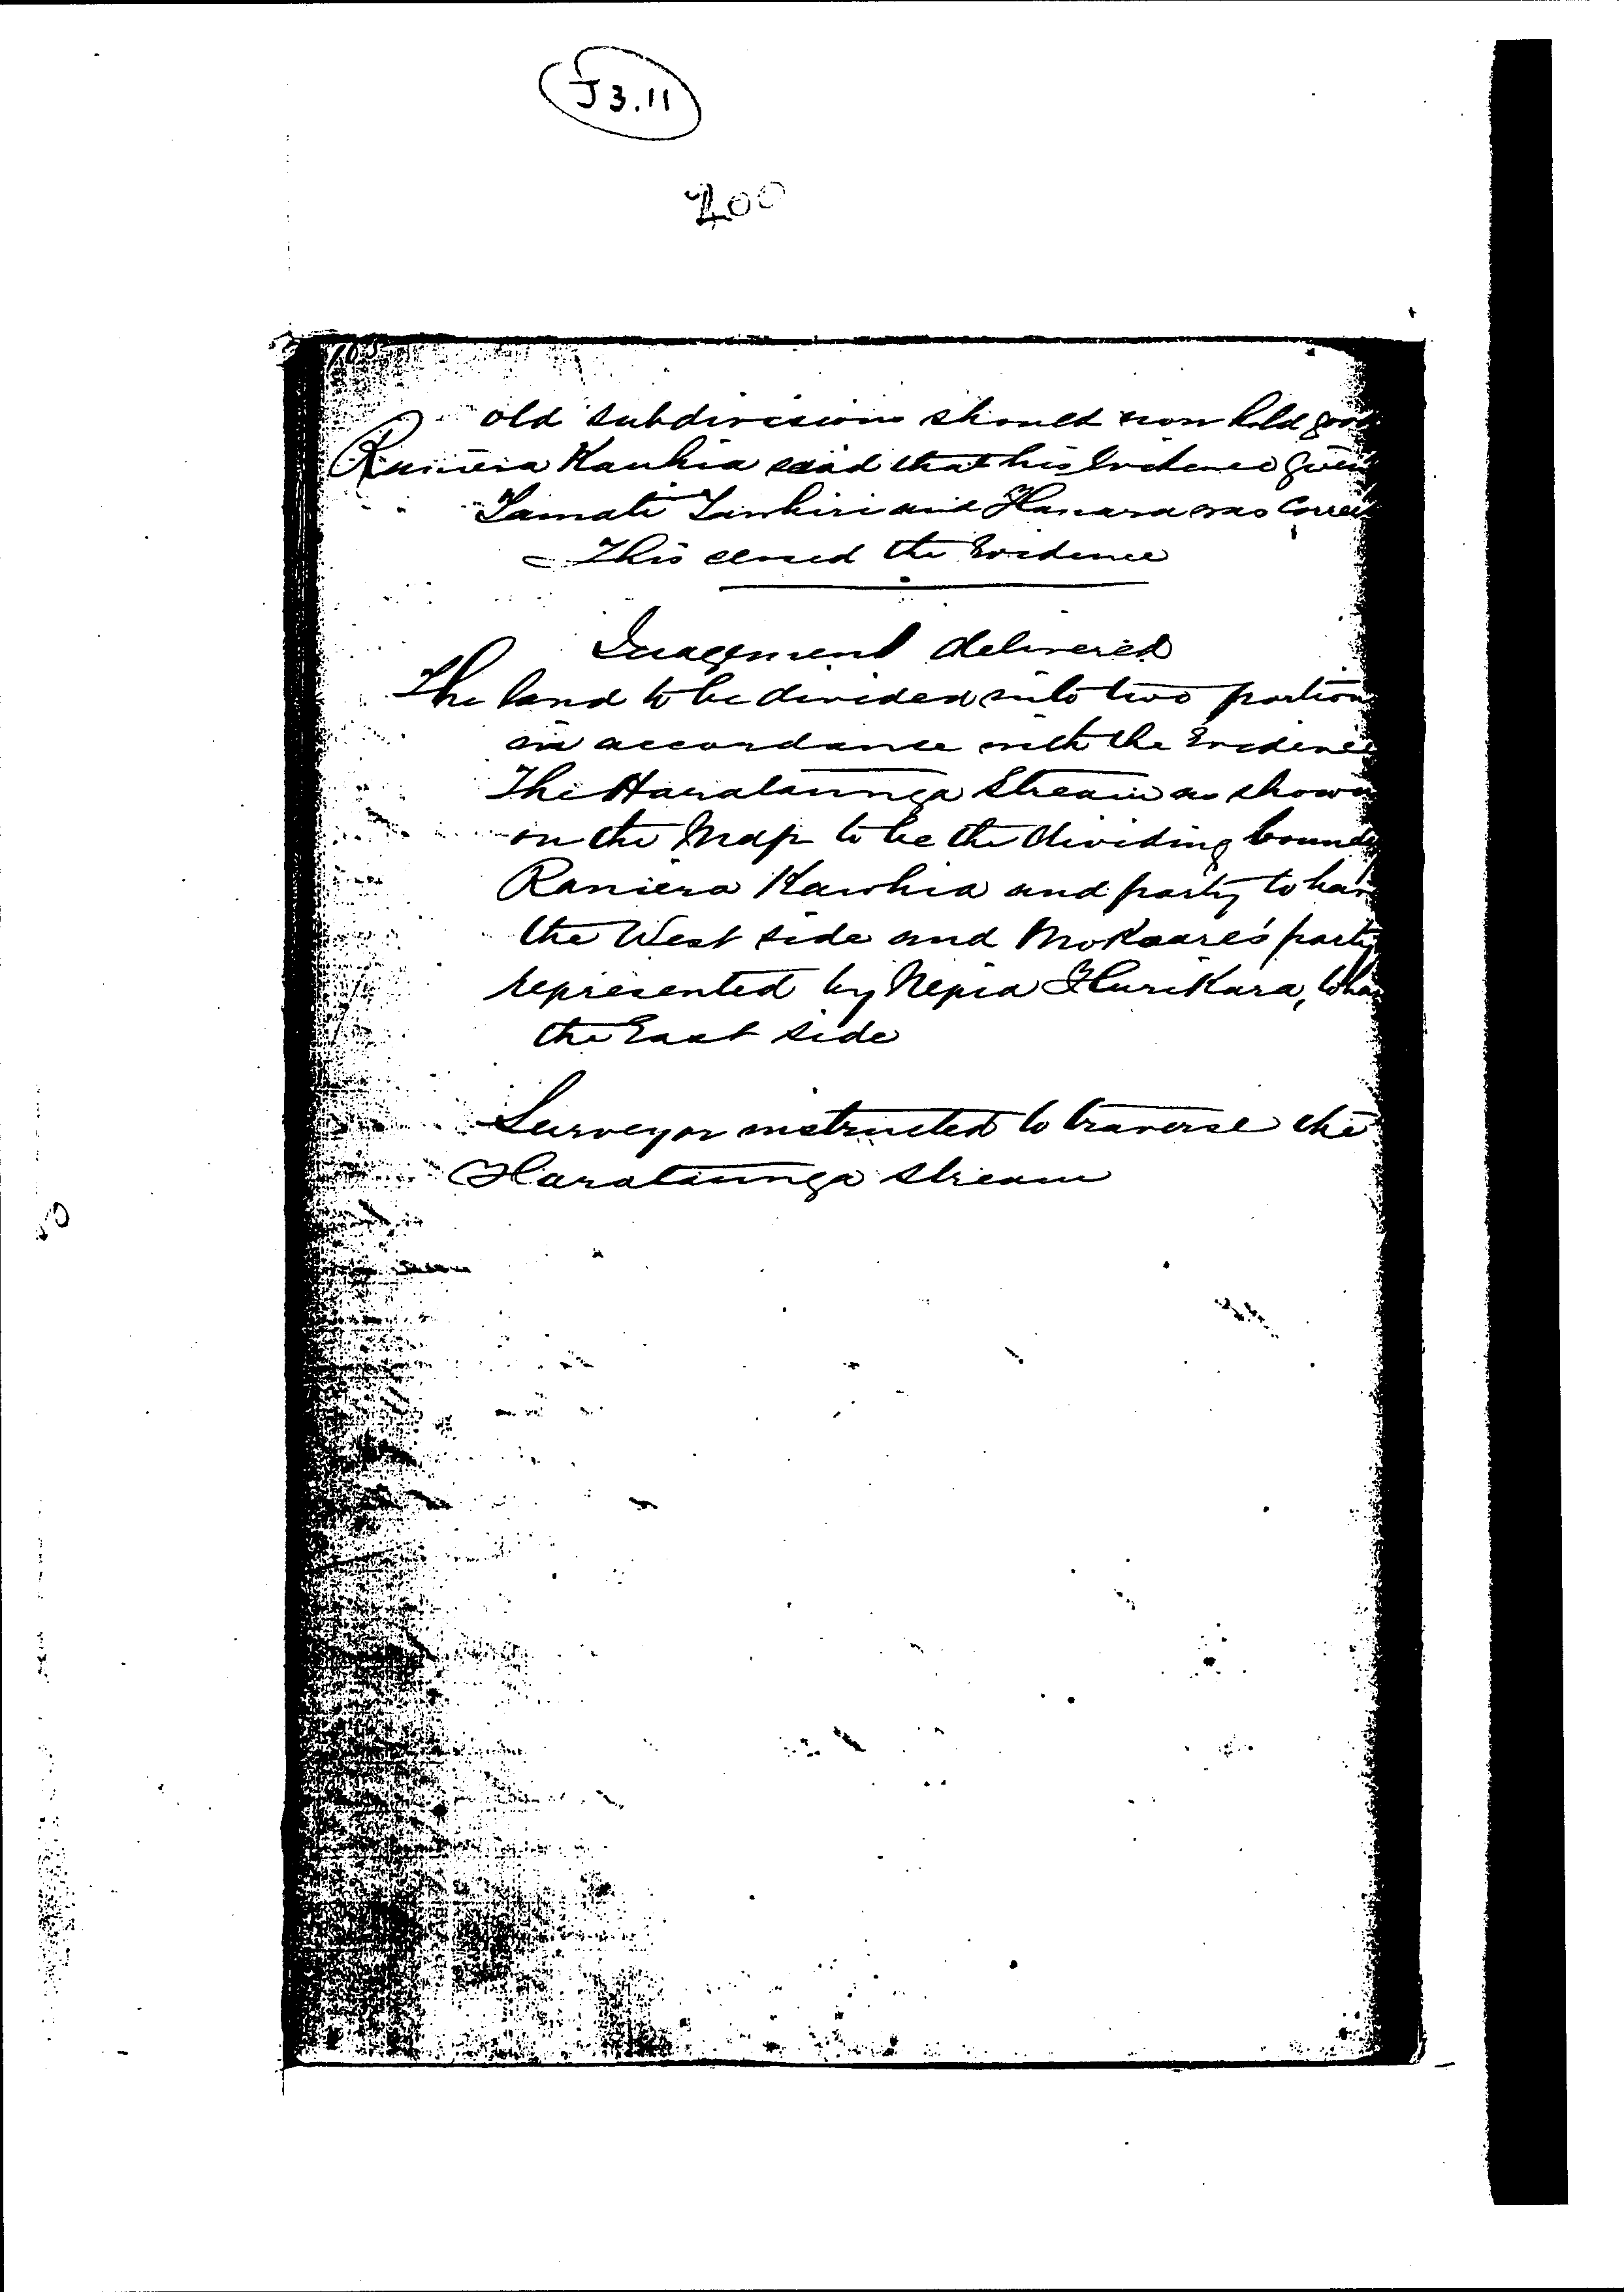 J3.11
200
105
old subdivisions should now hold good
Raniera Kawhia said that his Evidence given
Tamati Tawhiri and Hanara was Correct
This closed the Evidence
Judgement delivered
The land to be divided into two portion
in accordance with the Evidence
The Harataunga Stream as shown
on the Map to be the dividing bound
Raniera Kawhia and party to have
the West side and Mokaare's party
represented by Nepia Hurikara, to ha
the East side
Surveyor instructed to traverse the
Harataunga stream